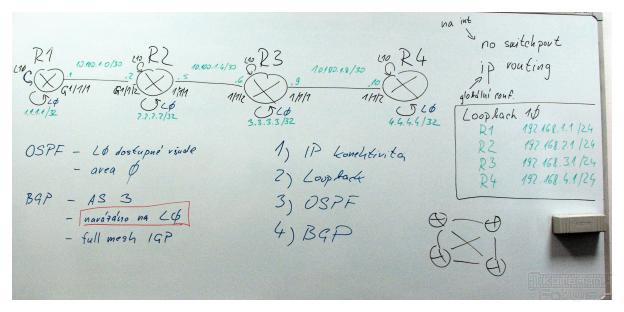 na int
no switchport
ip routing
globální conf.
R1 R2 R3 R4
L10 L10 L10 L10
10.10.1.0/30 10.10.1.4/30 10.10.1.8/30
.1 .2 .5 .6 .9 .10
G1/1/1 G1/1/2 1/1/1 1/1/2 1/1/1 1/1/2
LØ LØ LØ LØ
1.1.1.1/32 2.2.2.2/32 3.3.3.3/32 4.4.4.4/32
Loopback 1Ø
R1 192.168.1.1/24
R2 192.168.2.1/24
R3 192.168.3.1/24
R4 192.168.4.1/24
OSPF - LØ dostupné všude
- area Ø
BGP - AS 3
- navázáno na LØ
- full mesh IGP
1) IP konektivita
2) Loopback
3) OSPF
4) BGP